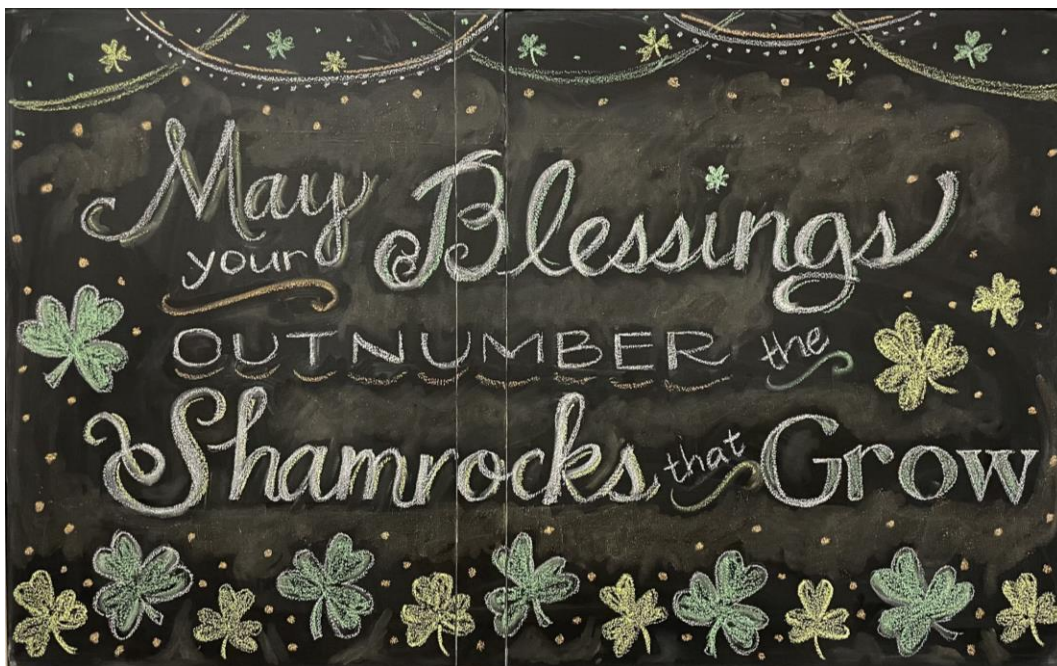 May your Blessings
OUTNUMBER the
Shamrocks that Grow